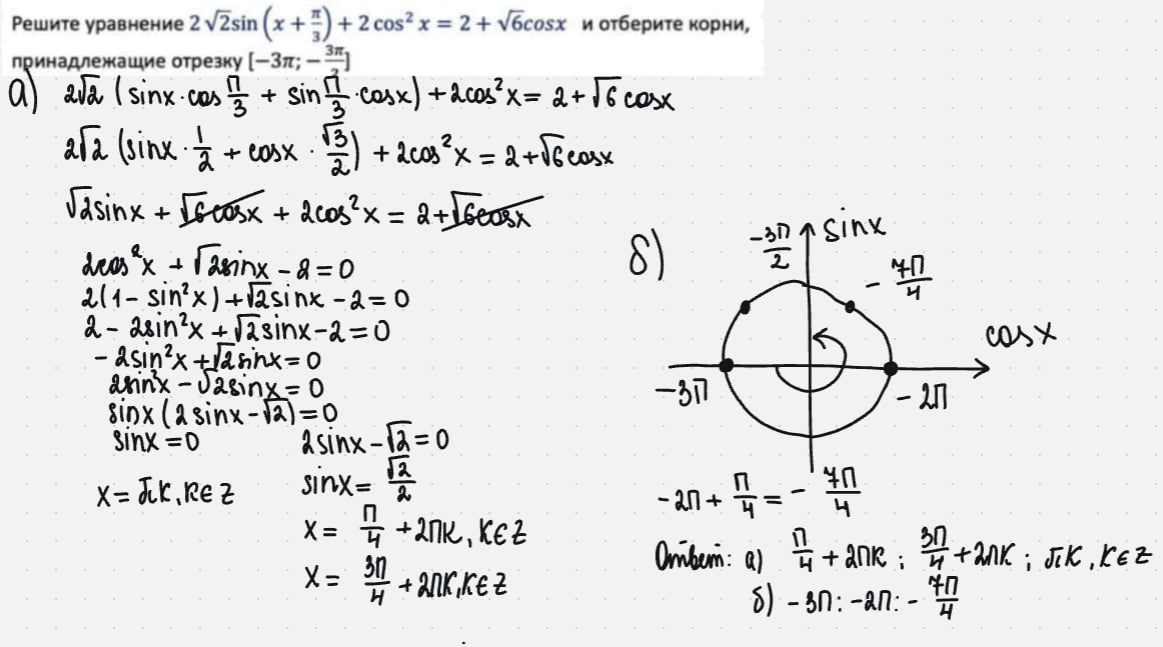 Решите уравнение 2√2sin(x + π/3) + 2 cos² x = 2 + √6cosx и отберите корни,
принадлежащие отрезку [−3π; −3π/2]
а) 2√2 (sinx·cos П/3 + sin П/3 · cosx) + 2cos²x = 2 + √6 cosx
2√2 (sinx · 1/2 + cosx · √3/2) + 2cos²x = 2+√6cosx
√2sinx + √6cosx + 2cos²x = 2+√6cosx
2cos²x + √2sinx − 2 = 0
2(1 − sin²x) + √2sinx − 2 = 0
2 − 2sin²x + √2sinx − 2 = 0
− 2sin²x + √2sinx = 0
2sin²x − √2sinx = 0
sinx (2sinx − √2) = 0
sinx = 0
x = πk, k∈Z
2sinx − √2 = 0
sinx = √2/2
x = П/4 + 2Пk, k∈Z
x = 3П/4 + 2Пk, k∈Z
б)
−3П/2
sinx
− 7П/4
cosx
−3П
− 2П
−2П + П/4 = − 7П/4
Ответ: а) П/4 + 2Пk ; 3П/4 + 2Пk ; πk, k∈Z
б) −3П; −2П; − 7П/4